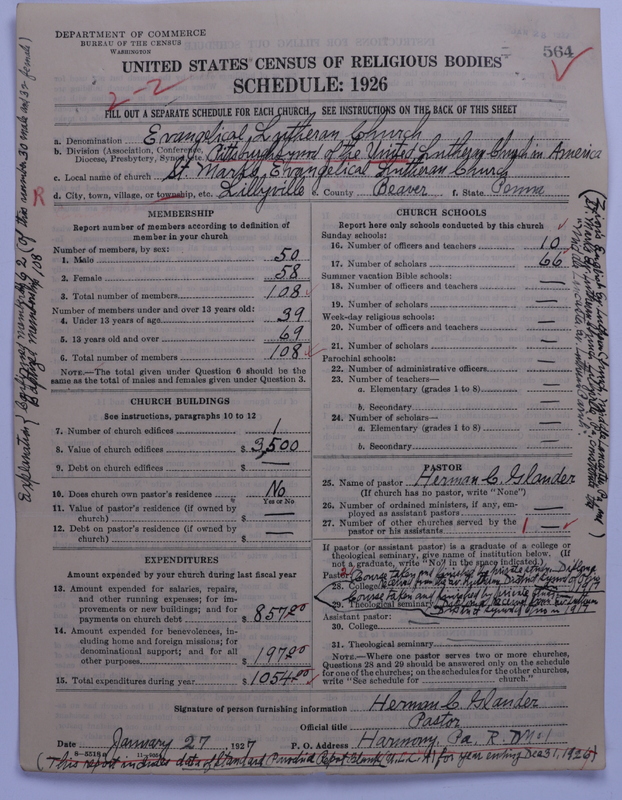 DEPARTMENT OF COMMERCE
BUREAU OF THE CENSUS
WASHINGTON
564
UNITED STATES CENSUS OF RELIGIOUS BODIES
SCHEDULE: 1926
2-2
FILL OUT A SEPARATE SCHEDULE FOR EACH CHURCH. SEE INSTRUCTIONS ON THE BACK OF THIS SHEET
a. Denomination Evangelical Lutheran Church
b. Division (Association, Conference, Diocese, Presbytery, Synod, etc.) Pittsburgh Synod of the United Lutheran Church in America
c. Local name of church St. Marks, Evangelical Lutheran Church
R
d. City, town, village, or township, etc. Lillyville County Beaver f. State Penna
MEMBERSHIP
Report number of members according to definition of
member in your church
Number of members, by sex:
1. Male 50
2. Female 58
3. Total number of members 108
Number of members under and over 13 years old:
4. Under 13 years of age 39
5. 13 years old and over 69
6. Total number of members 108
NOTE.—The total given under Question 6 should be the
same as the total of males and females given under Question 3.
CHURCH BUILDINGS
See instructions, paragraphs 10 to 12
7. Number of church edifices 1
8. Value of church edifices $ 3,500
9. Debt on church edifices $ —
10. Does church own pastor's residence No
Yes or No
11. Value of pastor's residence (if owned by
church) $ —
12. Debt on pastor's residence (if owned by
church) $ —
EXPENDITURES
Amount expended by your church during last fiscal year
13. Amount expended for salaries, repairs,
and other running expenses; for im-
provements or new buildings; and for
payments on church debt $ 857.00
14. Amount expended for benevolences, in-
cluding home and foreign missions; for
denominational support; and for all
other purposes $ 197.00
15. Total expenditures during year $ 1054.00
CHURCH SCHOOLS
Report here only schools conducted by this church
Sunday schools:
16. Number of officers and teachers 10
17. Number of scholars 66
Summer vacation Bible schools:
18. Number of officers and teachers —
19. Number of scholars —
Week-day religious schools:
20. Number of officers and teachers —
21. Number of scholars —
Parochial schools:
22. Number of administrative officers —
23. Number of teachers—
a. Elementary (grades 1 to 8) —
b. Secondary —
24. Number of scholars—
a. Elementary (grades 1 to 8) —
b. Secondary —
PASTOR
25. Name of pastor Herman C. Glander
(If church has no pastor, write "None")
26. Number of ordained ministers, if any, em-
ployed as assistant pastors —
27. Number of other churches served by the
pastor or his assistants —
If pastor (or assistant pastor) is a graduate of a college or
theological seminary, give name of institution below. (If
not a graduate, write "No" in the space indicated.)
Pastor:
28. College
29. Theological seminary
Assistant pastor:
30. College
31. Theological seminary
NOTE.—Where one pastor serves two or more churches,
Questions 28 and 29 should be answered only on the schedule
for one of the churches; on the schedules for the other churches,
write "See schedule for church."
Signature of person furnishing information Herman C. Glander
Official title Pastor
Date January 27, 1927 P. O. Address Harmony, Pa. R. D. No 1
8-5518 a
(This report includes data of Standard Parochial Report Blank (U.L.C.A) for year ending Dec 31, 1926)